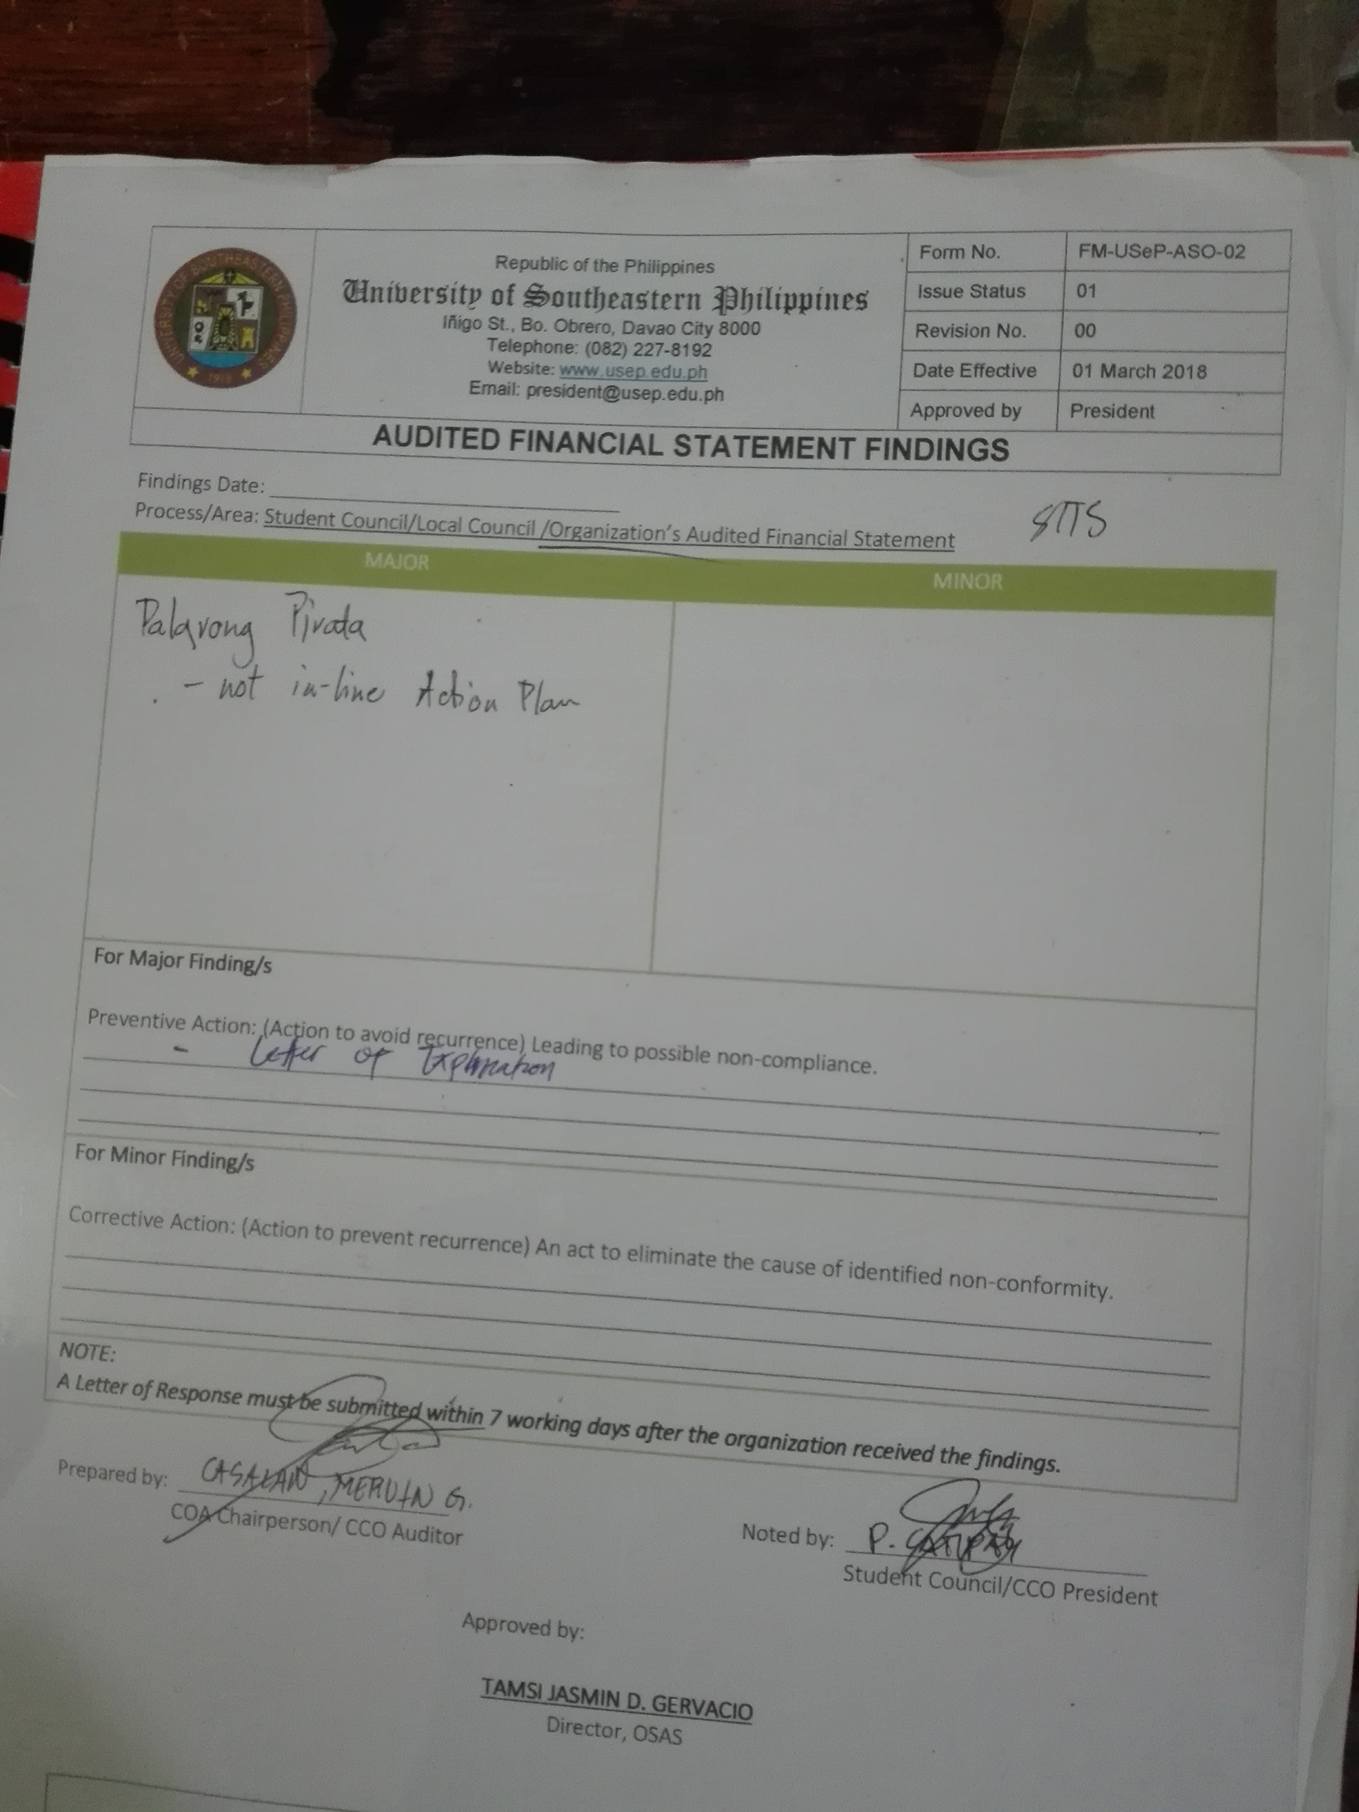 Republic of the Philippines
University of Southeastern Philippines
Iñigo St., Bo. Obrero, Davao City 8000
Telephone: (082) 227-8192
Website: www.usep.edu.ph
Email: president@usep.edu.ph
Form No. FM-USeP-ASO-02
Issue Status 01
Revision No. 00
Date Effective 01 March 2018
Approved by President
UNIVERSITY OF SOUTHEASTERN PHILIPPINES
AUDITED FINANCIAL STATEMENT FINDINGS
Findings Date:
Process/Area: Student Council/Local Council /Organization's Audited Financial Statement
SITS
MAJOR
MINOR
Palarong Pirata
- not in-line Action Plan
For Major Finding/s
Preventive Action: (Action to avoid recurrence) Leading to possible non-compliance.
- Letter of Explanation
For Minor Finding/s
Corrective Action: (Action to prevent recurrence) An act to eliminate the cause of identified non-conformity.
NOTE:
A Letter of Response must be submitted within 7 working days after the organization received the findings.
Prepared by: CASALAN, MERVIN G.
COA Chairperson/ CCO Auditor
Noted by: P.
Student Council/CCO President
Approved by:
TAMSI JASMIN D. GERVACIO
Director, OSAS